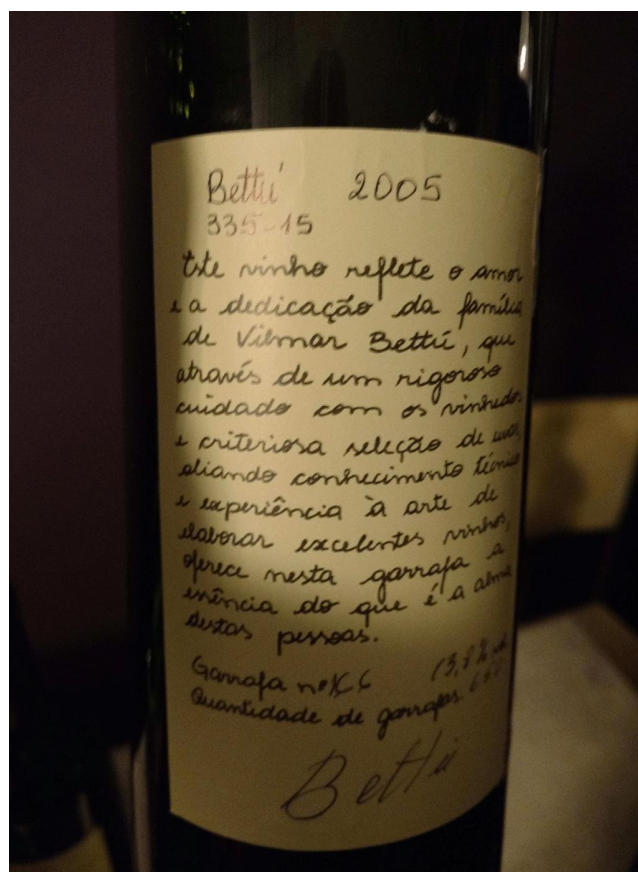 Bettú 2005
335-15
Este vinho reflete o amor
e a dedicação da família
de Vilmar Bettú, que
através de um rigoroso
cuidado com os vinhedos
e criteriosa seleção de uvas,
aliando conhecimento técnico
e experiência à arte de
elaborar excelentes vinhos,
oferece nesta garrafa a
essência do que é a alma
destas pessoas.
Garrafa nº 13,8% vol
Quantidade de garrafas.
Bettú